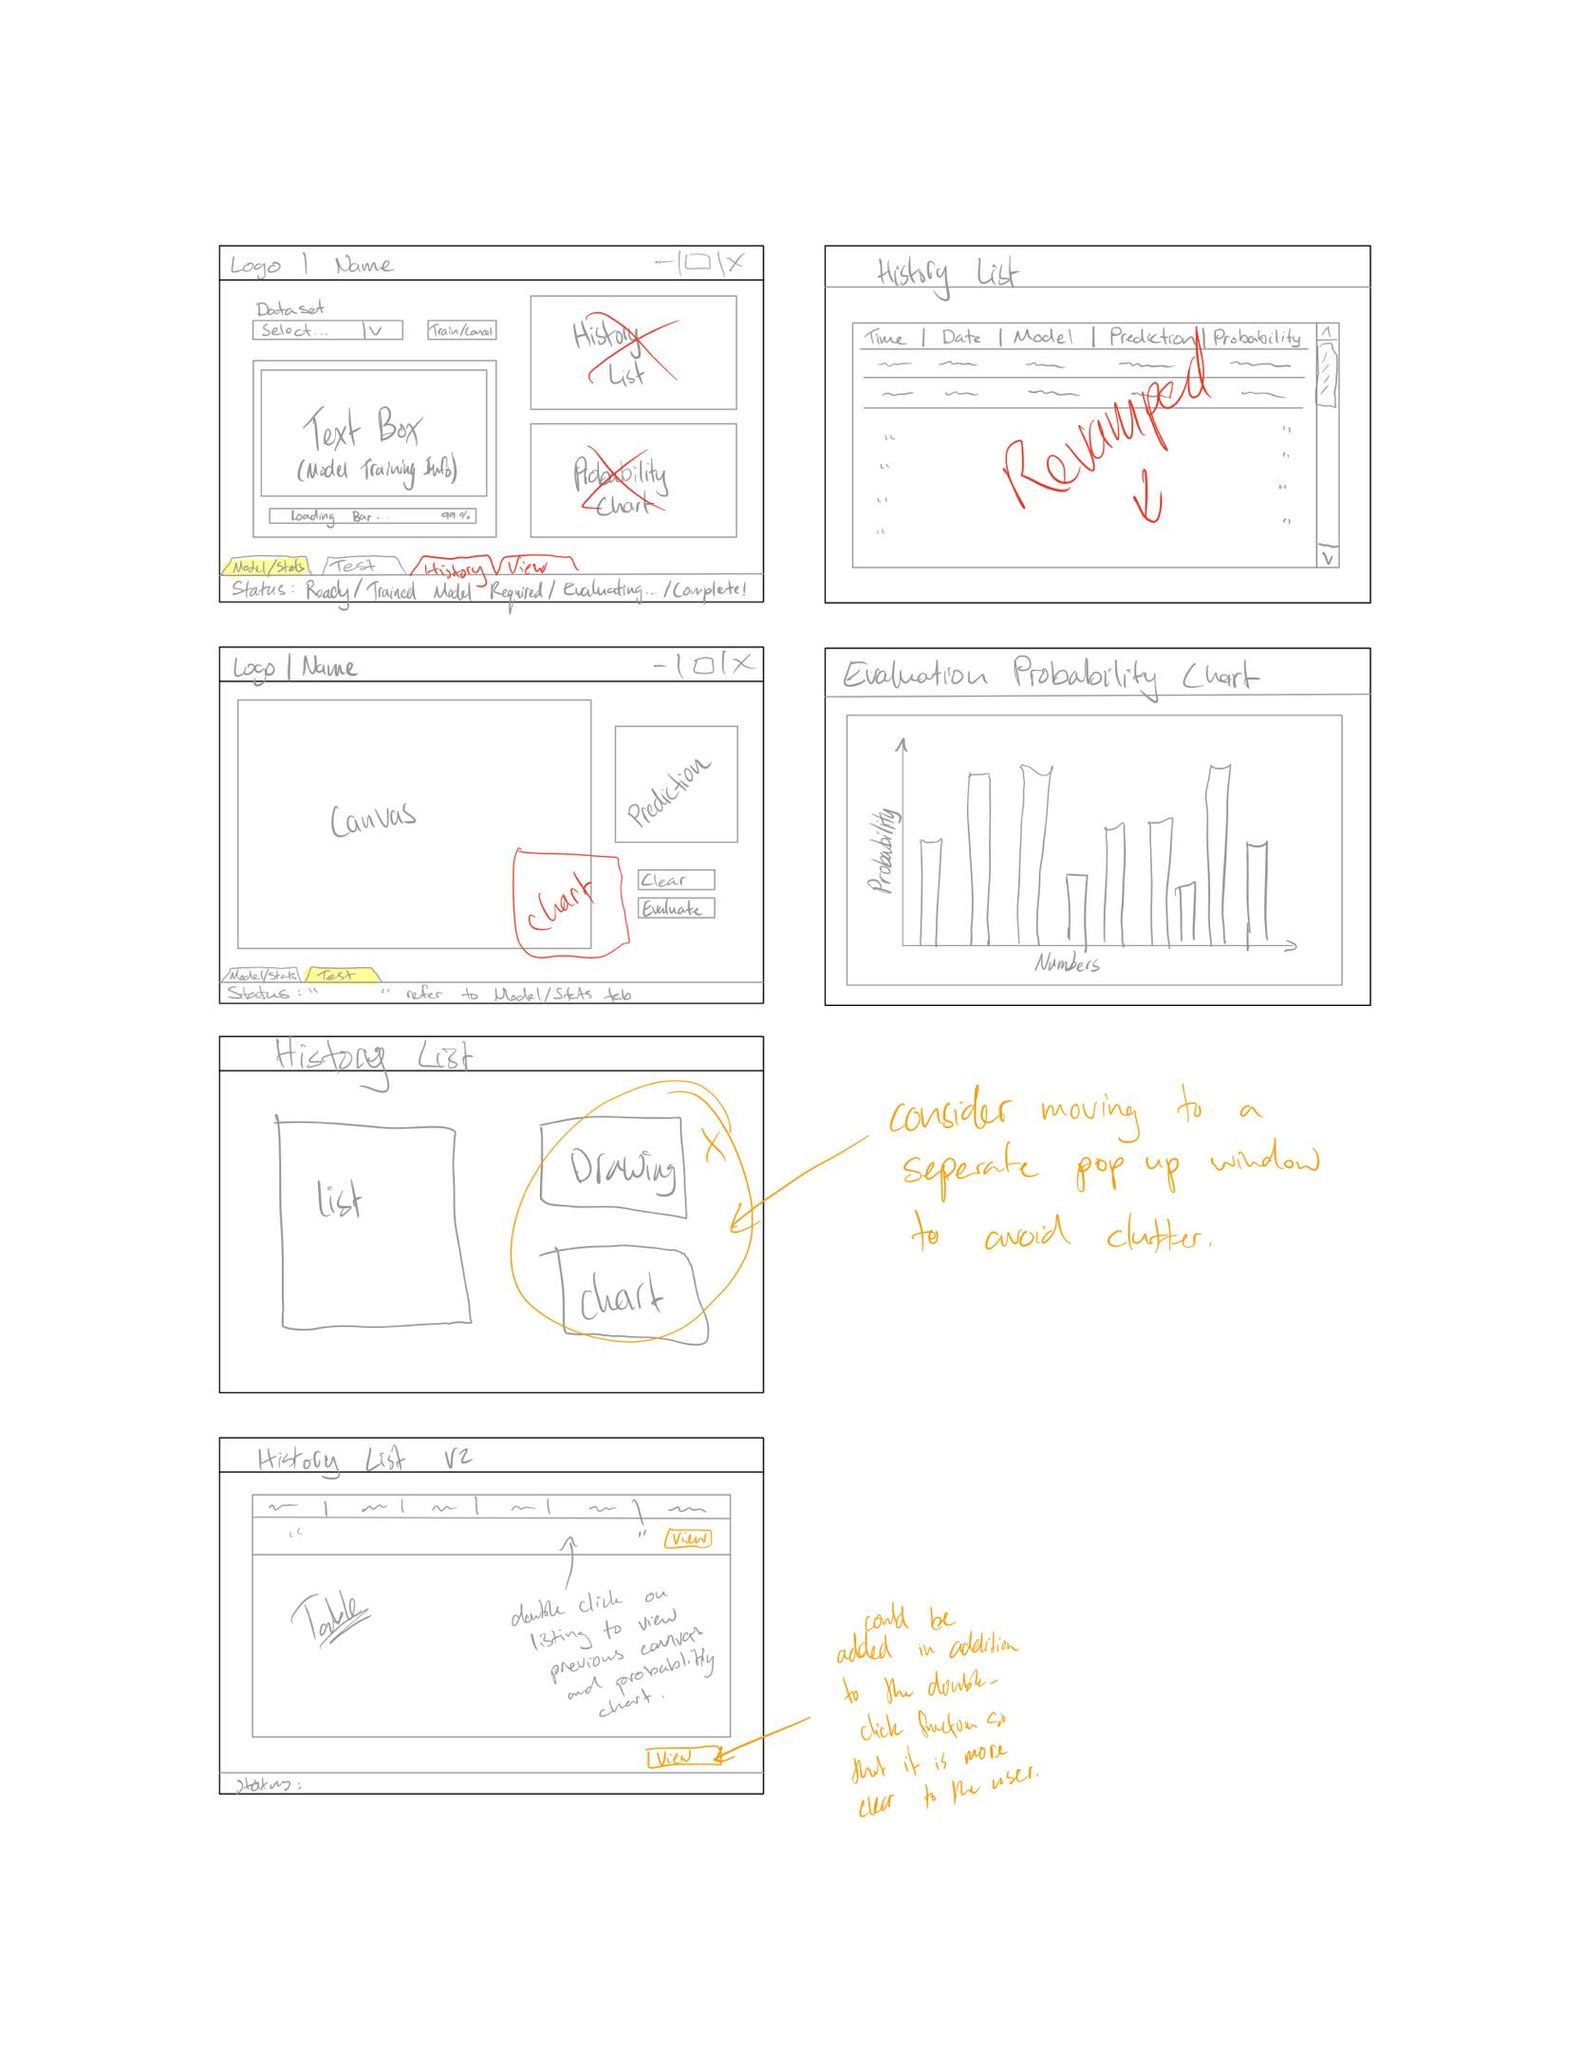 Logo | Name
- | □ | X
Dataset
Select... | V
Train/Cancel
Text Box
(Model Training Info)
Loading Bar... 99%
History
List
Probability
Chart
Model/Stats
Test
History
View
Status: Ready/Trained Model Required/Evaluating.../Complete!
History List
Time | Date | Model | Prediction | Probability
Revamped
Logo | Name
- | □ | X
Canvas
Prediction
Chart
Clear
Evaluate
Model/Stats
Test
Status: " " refer to Model/Stats tab
Evaluation Probability Chart
Probability
Numbers
History List
list
Drawing
X
chart
consider moving to a
seperate pop up window
to avoid clutter.
History List V2
" " View
Table
double click on
listing to view
previous canvas
and probability
chart.
View
Status:
could be
added in addition
to the double-
click function so
that it is more
clear to the user.